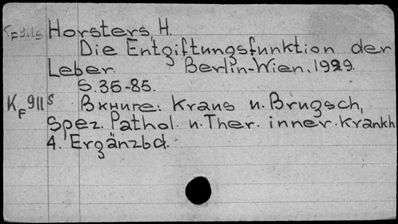 KF911s Horsters, H.
Die Entgiftungsfunktion der
Leber. Berlin-Wien, 1929.
S.35-85.
KF911s Вкниге: Kraus u. Brugsch,
Spez. Pathol. u. Ther. inner. Krankh.
4. Ergänzbd.